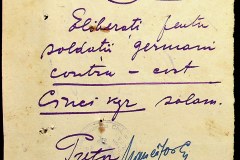 Eliberati pentru
soldatii germani
contra - cost
Cinci kgr salam.
Pretor